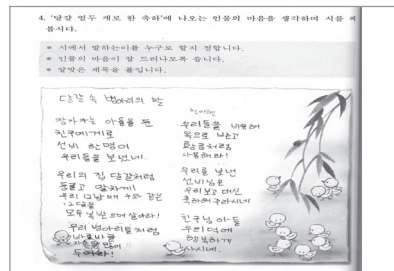 4. '달걀 열두 개로 한 축하'에 나오는 인물의 마음을 생각하며 시를 써
봅시다.
시에서 말하는이를 누구로 할지 정합니다.
인물의 마음이 잘 드러나도록 씁니다.
알맞은 제목을 붙입니다.
달걀 속 병아리의 말
장가가는 아들을 둔
친구에게로
선비 한 명이
우리들을 보냈네.
우리의 집 달걀처럼
둥글고 알차게
우리 12남매
모두 복 받으며 살아라!
우리 병아리들처럼
우리들을
황금처럼
우리를 보낸
선비님은
우리보고 대신
축하해주라시네
친구님 아들
우리 덕에
행복하게
사시네.